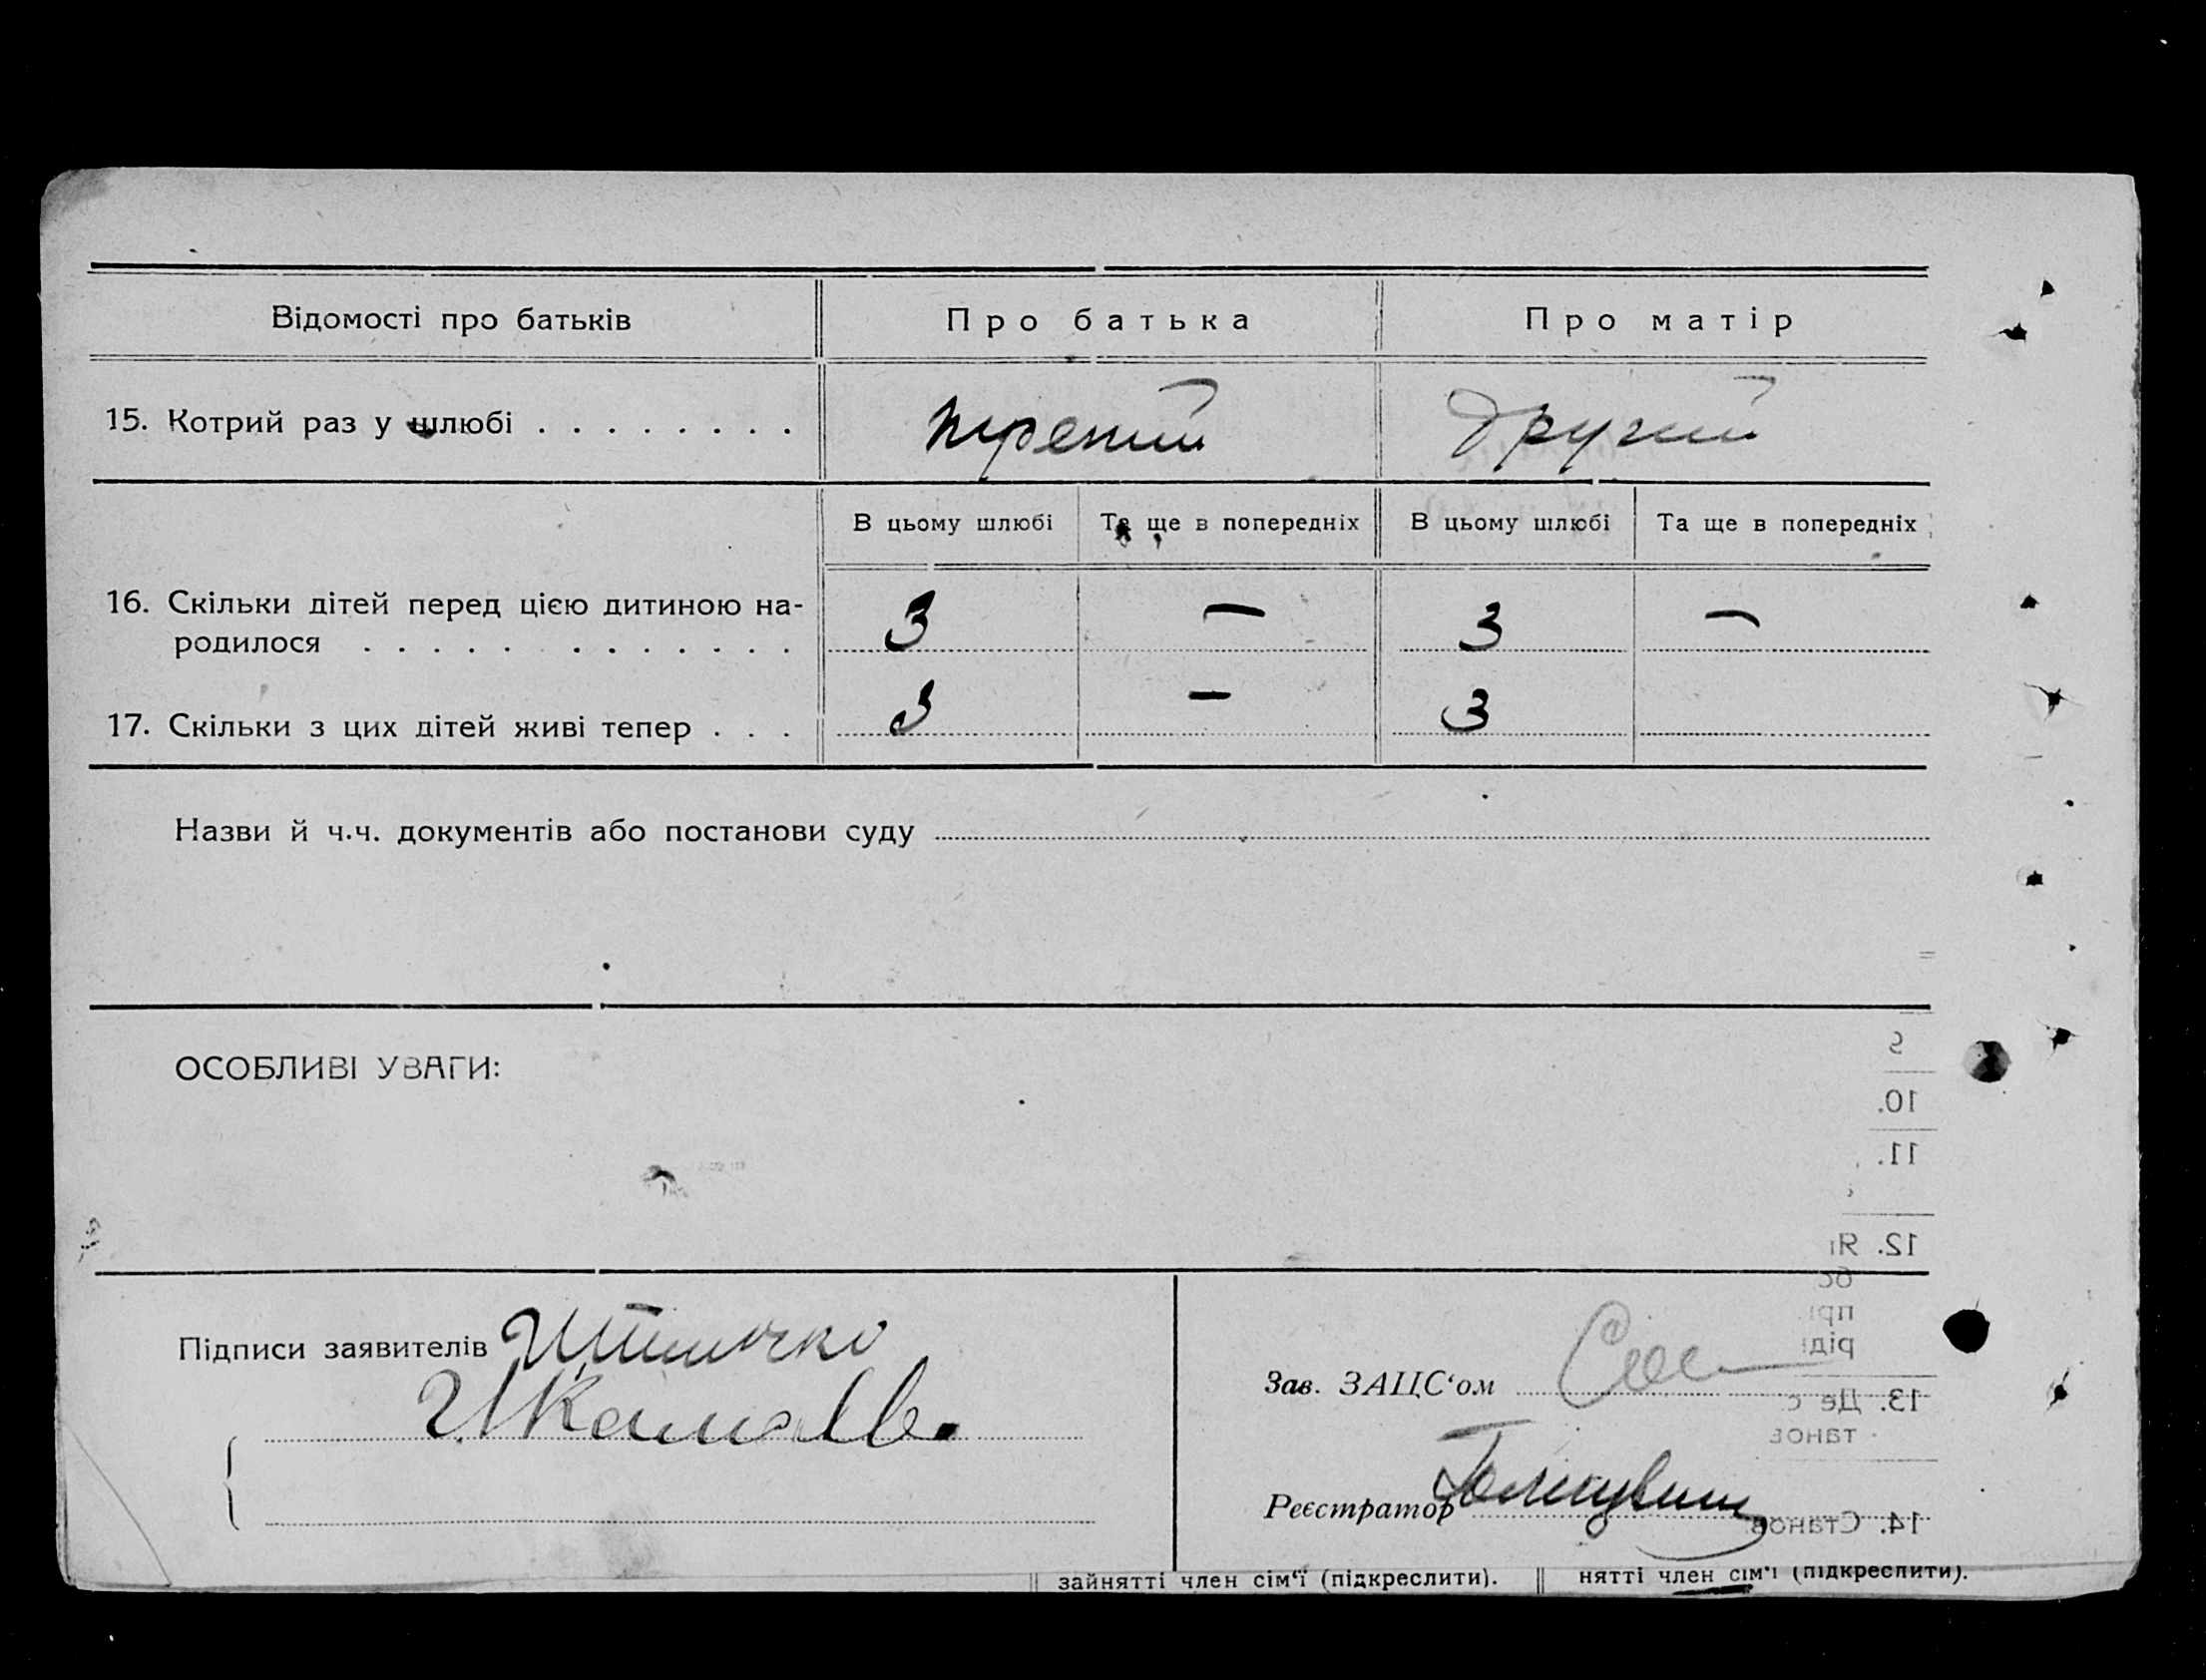 Відомості про батьків
Про батька
Про матір
15. Котрий раз у шлюбі . . . . . . . .
другий
В цьому шлюбі
Та ще в попередніх
В цьому шлюбі
Та ще в попередніх
16. Скільки дітей перед цією дитиною на-
родилося . . . . . . . . . . . . .
3 — 3 —
17. Скільки з цих дітей живі тепер . . .
3 — 3
Назви й ч.ч. документів або постанови суду
ОСОБЛИВІ УВАГИ:
9
10.
11.
12.
Підписи заявителів
Зав. ЗАЦС‘ом
13. Де с
танов
Реєстратор
14. Станов
зайнятті член сім‘ї (підкреслити).
нятті член сім‘ї (підкреслити).